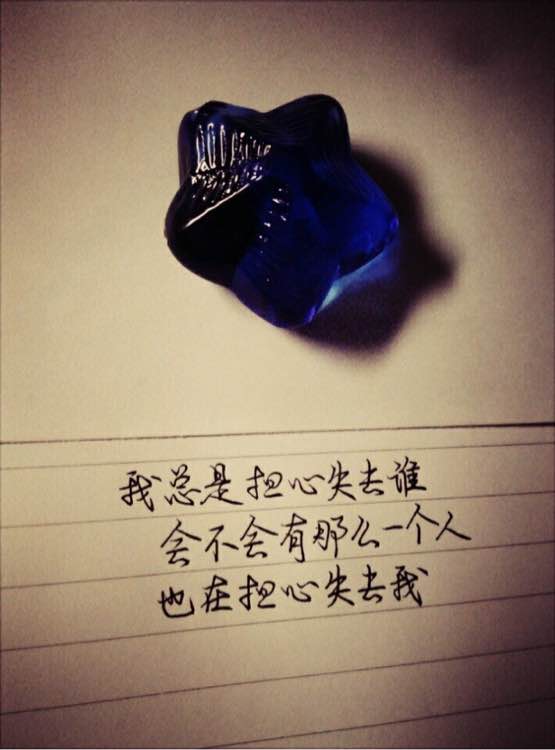 我总是担心失去谁
会不会有那么一个人
也在担心失去我